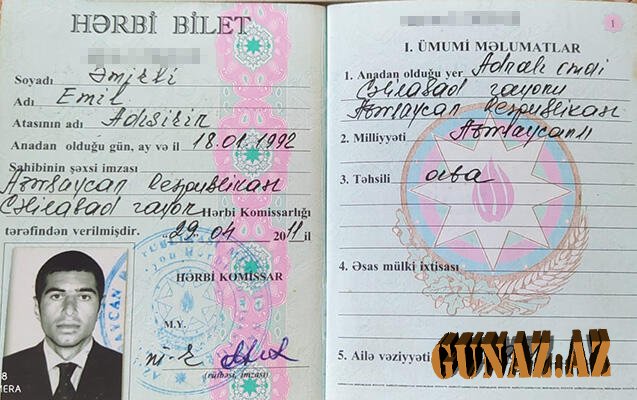 HƏRBİ BİLET
Soyadı Əmjrli
Adı Emil
Atasının adı Adışirin
Anadan olduğu gün, ay və il 18.01.1992
Sahibinin şəxsi imzası
Azərbaycan Respublikası
Cəlilabad rayon Hərbi Komissarlığı
tərəfindən verilmişdir. "29" 04 2011 il
HƏRBİ KOMİSSAR
M.Y.
(rütbəsi, imzası)
1
I. ÜMUMİ MƏLUMATLAR
1. Anadan olduğu yer
Cəlilabad rayonu
Azərbaycan Respublikası
2. Milliyyəti Azərbaycanlı
3. Təhsili orta
4. Əsas mülki ixtisası
5. Ailə vəziyyəti
GUNAZ.AZ